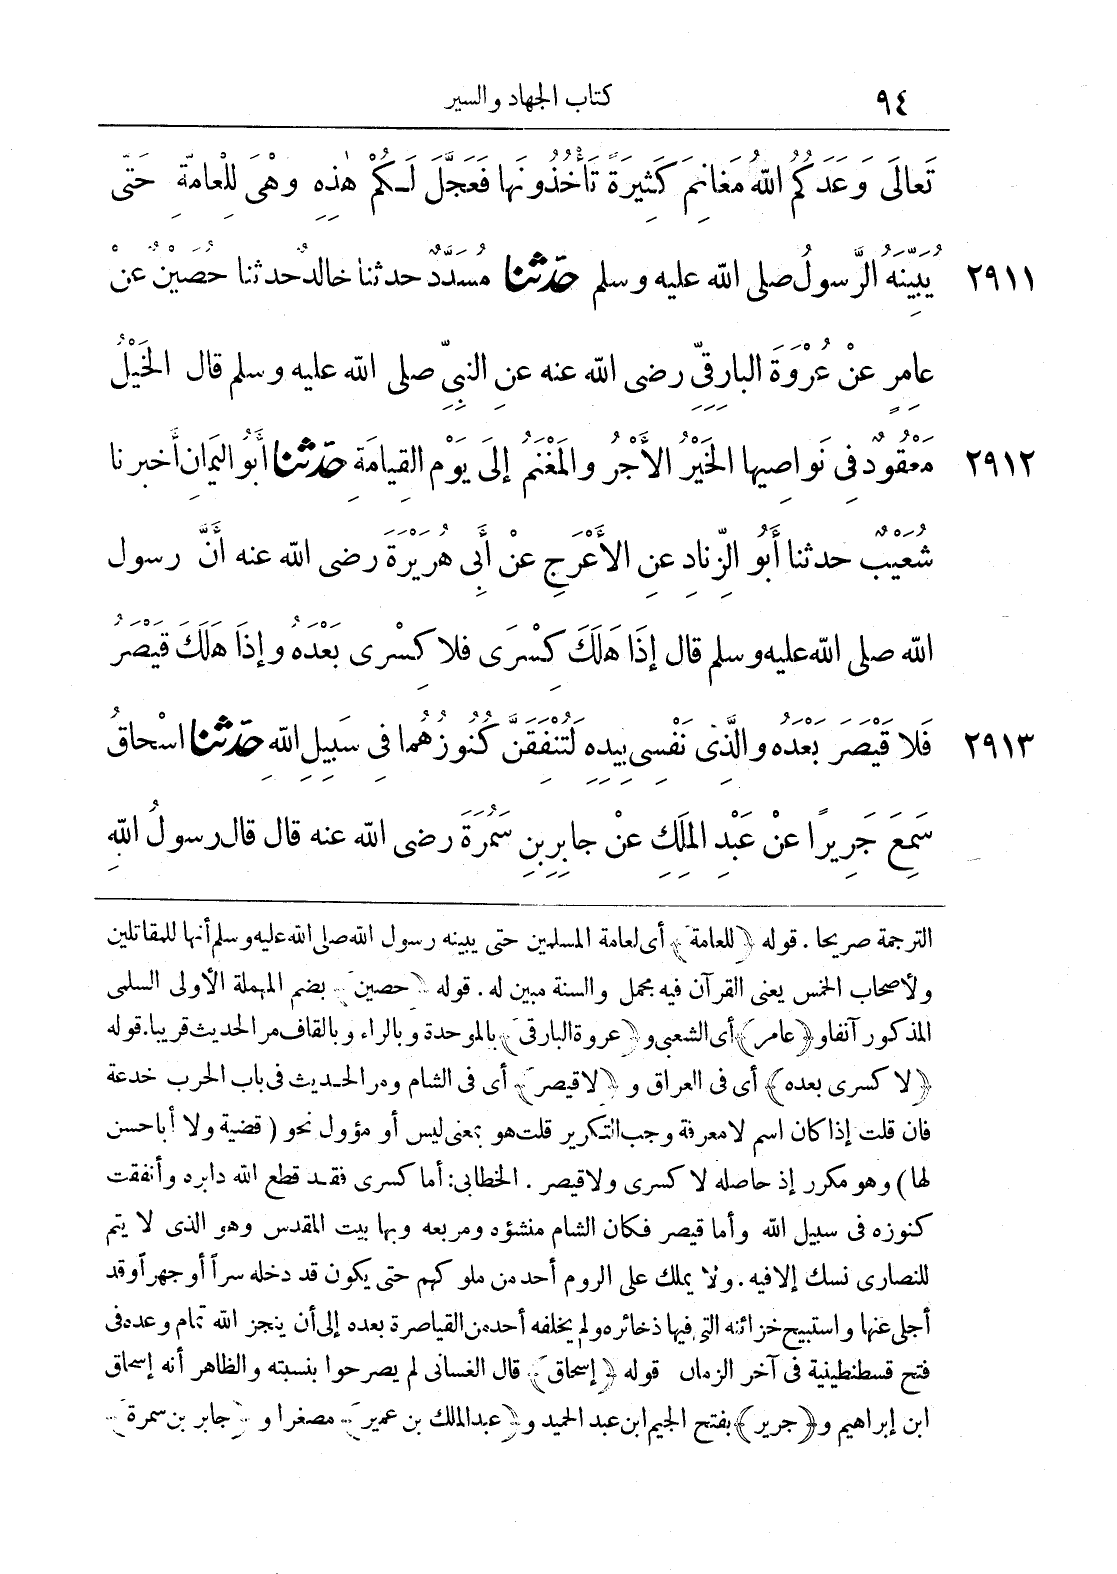 ٩٤ كتاب الجهاد والسير
تَعالَى وَعَدَكُمُ اللهُ مَغَانِمَ كَثِيرَةً تَأْخُذُونَها فَعَجَّلَ لَكُمْ هٰذِهِ وهْىَ لِلْعامَّةِ حَتَّى
٢٩١١ يُبَيِّنَهُ الرَّسولُ صلى الله عليه وسلم حَدَّثَنا مُسَدَّدٌ حدثنا خالدٌ حدثنا حُصَيْنٌ عنْ
عامِرٍ عنْ عُرْوَةَ البارِقِىِّ رضى الله عنه عنِ النبىِّ صلى الله عليه وسلم قال الخَيْلُ
٢٩١٢ مَعْقُودٌ فِى نَواصِيها الخَيْرُ الأَجْرُ والمَغْنَمُ إلَى يَوْمِ القِيامَةِ حَدَّثَنا أَبُو اليَمَانِ أَخبرنا
شُعَيْبٌ حدثنا أَبُو الزِّنادِ عنِ الأَعْرَجِ عنْ أَبِى هُرَيْرَةَ رضى الله عنه أَنَّ رسول
الله صلى الله عليه وسلم قال إذَا هَلَكَ كِسْرَى فلا كِسْرى بَعْدَهُ وإذَا هَلَكَ قَيْصَرُ
٢٩١٣ فَلا قَيْصَرَ بَعْدَهُ والَّذِى نَفْسِى بِيَدِهِ لَتُنْفَقَنَّ كُنُوزُهُما فِى سَبِيلِ اللهِ حَدَّثَنا اسْحاقُ
سَمِعَ جَرِيرًا عنْ عَبْدِ المَلِكِ عنْ جابِرِ بنِ سَمُرَةَ رضى الله عنه قال قال رسولُ اللهِ
الترجمة صريحا . قوله ﴿للعامة﴾ أى لعامة المسلمين حتى يبينه رسول الله صلى الله عليه وسلم أنها للمقاتلين
ولأصحاب الخمس يعنى القرآن فيه مجمل والسنة مبين له . قوله ﴿حصين﴾ بضم المهملة الأولى السلمى
المذكور آنفا و﴿عامر﴾ أى الشعبى و﴿عروة البارقى﴾ بالموحدة وبالراء وبالقاف مر الحديث قريبا . قوله
﴿لا كسرى بعده﴾ أى فى العراق و ﴿لا قيصر﴾ أى فى الشام ومر الحديث فى باب الحرب خدعة
فان قلت إذا كان اسم لا معرفة وجب التكرير قلت هو بمعنى ليس أو مؤول نحو (قضية ولا أبا حسن
لها) وهو مكرر إذ حاصله لا كسرى ولا قيصر . الخطابى: أما كسرى فقد قطع الله دابره وأنفقت
كنوزه فى سبيل الله وأما قيصر فكان الشام منشؤه ومربعه وبها بيت المقدس وهو الذى لا يتم
للنصارى نسك إلا فيه . ولا يملك على الروم أحد من ملوكهم حتى يكون قد دخله سراً أو جهراً وقد
أجلى عنها واستبيح خزائنه التى فيها ذخائره ولم يخلفه أحد من القياصرة بعده إلى أن ينجز الله تمام وعده فى
فتح قسطنطينية فى آخر الزمان قوله ﴿إسحاق﴾ قال الغسانى لم يصرحوا بنسبته والظاهر أنه إسحاق
ابن إبراهيم و﴿جرير﴾ بفتح الجيم ابن عبد الحميد و﴿عبد الملك بن عمير﴾ مصغرا و ﴿جابر بن سمرة﴾